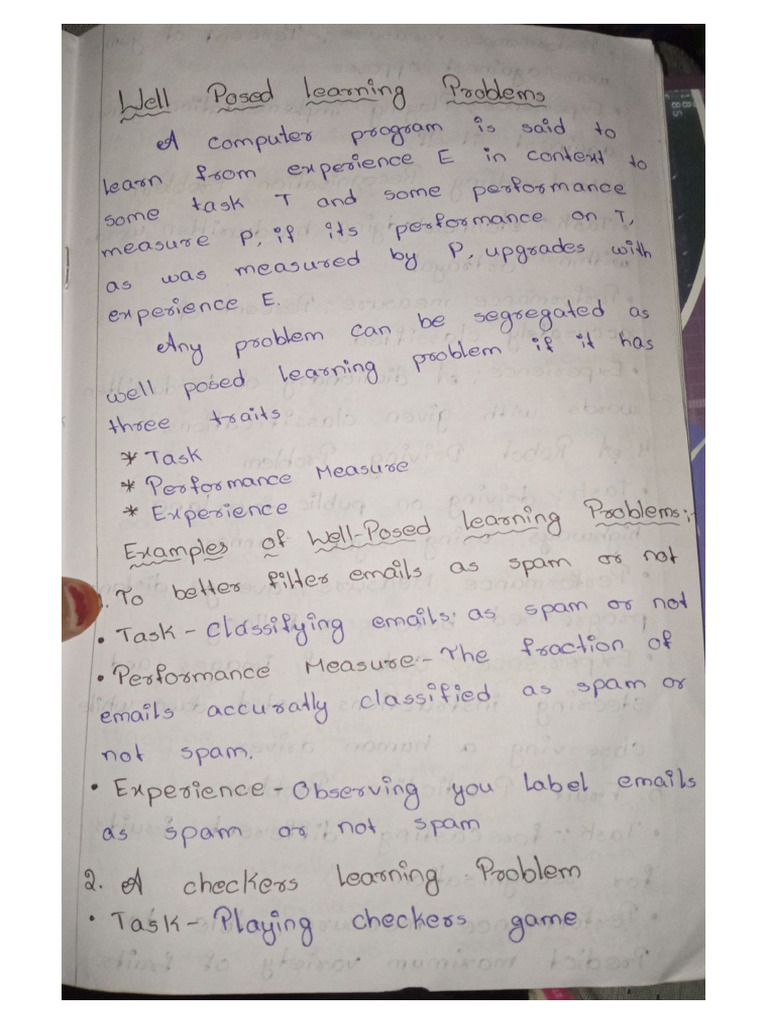 Well Posed Learning Problems
A computer program is said to
learn from experience E in context to
some task T and some performance
measure P, if its performance on T,
as was measured by P, upgrades with
experience E.
Any problem can be segregated as
well posed learning problem if it has
three traits
* Task
* Performance Measure
* Experience
Examples of Well-Posed learning Problems:-
1. To better filter emails as spam or not
• Task - Classifying emails as spam or not
• Performance Measure - The fraction of
emails accuratly classified as spam or
not spam.
• Experience - Observing you label emails
as spam or not spam
2. A checkers learning Problem
• Task - Playing checkers game